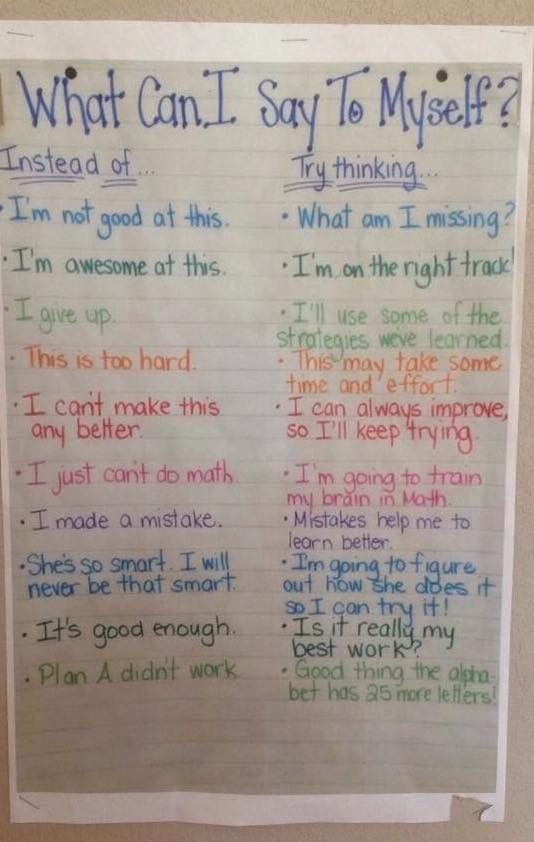 What Can I Say To Myself?
Instead of...
Try thinking...
• I'm not good at this.
• What am I missing?
• I'm awesome at this.
• I'm on the right track!
• I give up.
• I'll use some of the
strategies we've learned.
• This is too hard.
• This may take some
time and effort.
• I can't make this
any better.
• I can always improve,
so I'll keep trying.
• I just can't do math.
• I'm going to train
my brain in Math.
• I made a mistake.
• Mistakes help me to
learn better.
• She's so smart. I will
never be that smart.
• I'm going to figure
out how she does it
so I can try it!
• It's good enough.
• Is it really my
best work?
• Plan A didn't work
• Good thing the alpha-
bet has 25 more letters!